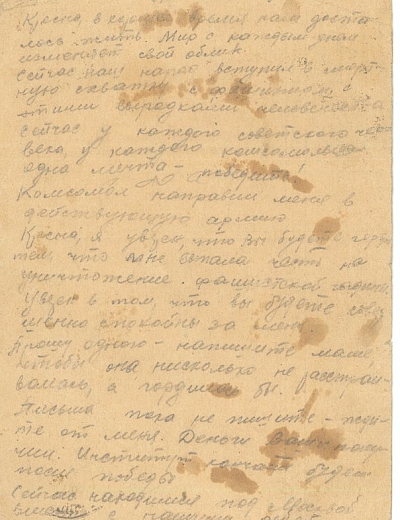 Крёсна, в хорошее время нам доста-
лось жить. Мир с каждым днём
изменяет свой облик.
Сейчас наш народ вступил в смерт-
ную схватку с фашизмом, с
этими выродками человечества
Сейчас у каждого советского чело-
века, у каждого комсомольца
одна мечта - победить!
Комсомол направил меня в
действующую армию
Крёсна, я уверен, что Вы будете
тем, что мне выпала честь на
уничтожение фашистской гадины
Уверен в том, что вы будете совер-
шенно спокойны за меня.
Прошу одного - напишите маме
чтобы она нисколько не расстраи-
валась, а гордилась бы.
Письма пока не пишите - жди-
те от меня. Деньги Ваши полу-
чил. Институт кончать будем
после победы
Сейчас находимся под Москвой
вместе с